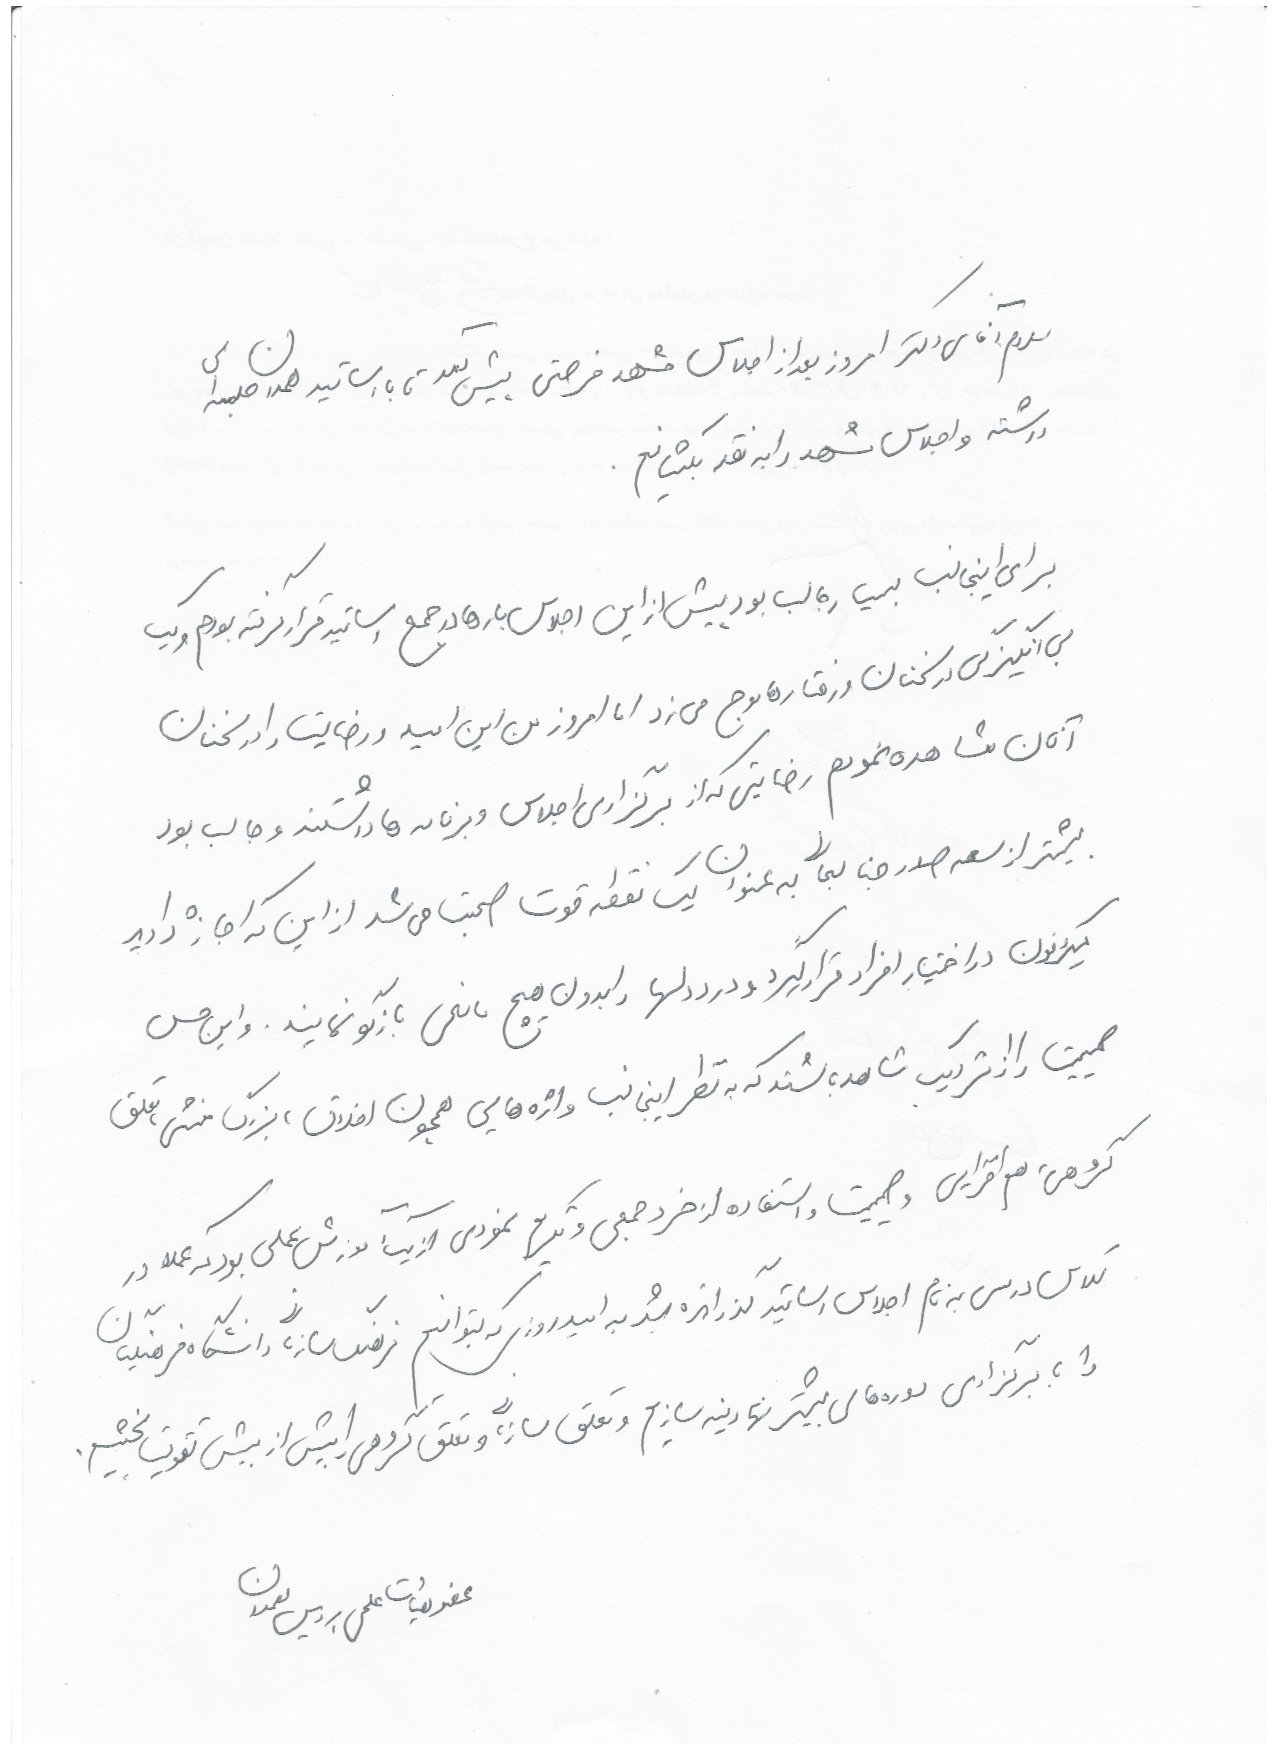 سلام آقای دکتر امروز بعد از اجلاس مشهد فرصتی پیش آمد تا با اساتید همدان جلسه ای
داشته و اجلاس مشهد را به نقد بکشانیم .
برای اینجانب بسیار جالب بود پیش از این اجلاس بارها در جمع اساتید قرار گرفته بودم و یک
بی انگیزگی در سخنان و رفتارها موج می زد اما امروز من این امید و رضایت را در سخنان
آنان مشاهده نمودم رضایتی که از برگزاری اجلاس و برنامه ها داشتند و جالب بود
بیشتر از سعه صدر جنابعالی به عنوان یک نقطه قوت صحبت می شد از این که اجازه دادید
میکروفون در اختیار افراد قرار گیرد و درد دلها را بدون هیچ مانعی بازگو نمایند . و این حس
صمیمیت را از نزدیک شاهد باشند که به نظر اینجانب واژه هایی همچون اخلاق ، بزرگ منشی ، تعلق
گروهی ، هم افزایی و صمیمیت و استفاده از خرد جمعی و تکریم نمودی از یک آموزش عملی بود که عملا در
کلاس درسی به نام اجلاس اساتید گذرانده شد به امید روزی که بتوانیم فرهنگ سازمانی دانشگاه فرهنگیان
را با برگزاری دوره های بیشتر نهادینه سازیم و تعلق سازمانی و تعلق گروهی را بیش از پیش تقویت بخشیم .
عضو هیات علمی پردیس همدان